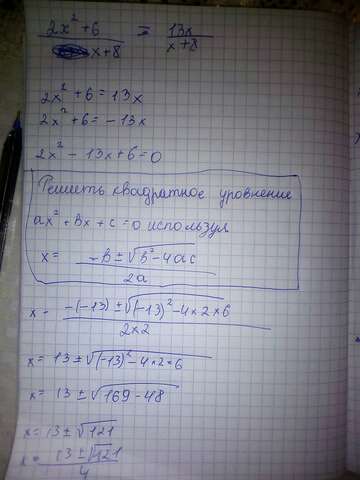 2x² + 6 = 13x
x+8 x+8
2x² + 6 = 13x
2x² + 6 = -13x
2x² - 13x + 6 = 0
Решить квадратное уровнение
ax² + Bx + c = 0 используя
x = -B ± √B² - 4ac
2a
x = -(-13) ± √(-13)² - 4×2×6
2×2
x = 13 ± √(-13)² - 4×2×6
x = 13 ± √169 - 48
x = 13 ± √121
x = 13 ± √121
4